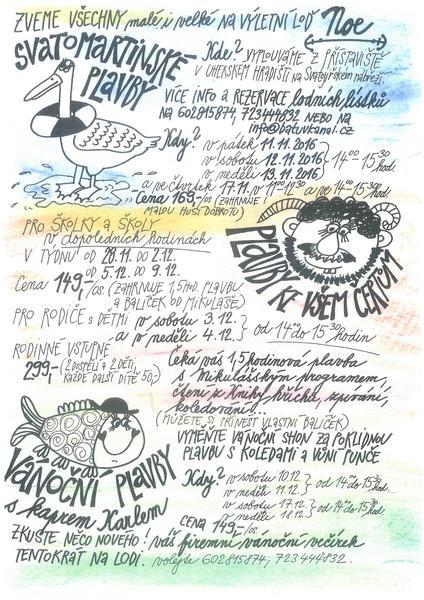 ZVEME VŠECHNY malé i velké NA VÝLETNÍ LOĎ Noe
SVATOMARTINSKÉ
PLAVBY
Kde? VYPLOUVÁME Z PŘÍSTAVIŠTĚ
V UHERSKÉM HRADIŠTI NA
VÍCE INFO A REZERVACE lodních lístků
NA 602815874, 723444832 NEBO NA
info@batuvkanal.cz
Kdy? v pátek 11.11.2016
v sobotu 12.11.2016
v neděli 13.11.2016
14⁰⁰-15³⁰ hod.
a ve čtvrtek 17.11. v 11⁰⁰-12³⁰ a ve 14⁰⁰-15³⁰
Cena 169,-/os. (ZAHRNUJE I
MALOU HUSÍ DOBROTU)
PRO ŠKOLKY a ŠKOLY
v dopoledních hodinách
V TÝDNU OD 28.11. DO 2.12.
OD 5.12. DO 9.12.
Cena 149,-/os. (ZAHRNUJE 1,5 HOD. PLAVBU
A BALÍČEK OD MIKULÁŠE)
PLAVBY KE VŠEM ČERTŮM
PRO RODIČE s DĚTMI v sobotu 3.12.
a v neděli 4.12.
od 14⁰⁰ do 15³⁰ hodin
RODINNÉ VSTUPNÉ
299,- (2 DOSPĚLÍ a 2 DĚTI,
KAŽDÉ DALŠÍ DÍTĚ 50,-)
Čeká vás 1,5 hodinová plavba
s Mikulášským programem,
čtení z Knihy hříchů, zpívání,
koledování...
(MŮŽETE SI PŘINÉST VLASTNÍ BALÍČEK)
VÁNOČNÍ PLAVBY
s kaprem Karlem
VYMĚŇTE VÁNOČNÍ SHON ZA POKLIDNOU
PLAVBU S KOLEDAMI A VŮNÍ PUNČE
Kdy? v sobotu 10.12.
v neděli 11.12.
od 14⁰⁰ do 15³⁰ hod.
v sobotu 17.12.
v neděli 18.12.
od 14⁰⁰ do 15³⁰ hod.
CENA 149,-/os.
ZKUSTE NĚCO NOVÉHO! váš firemní vánoční večírek
TENTOKRÁT NA LODI. volejte 602815874, 723444832.